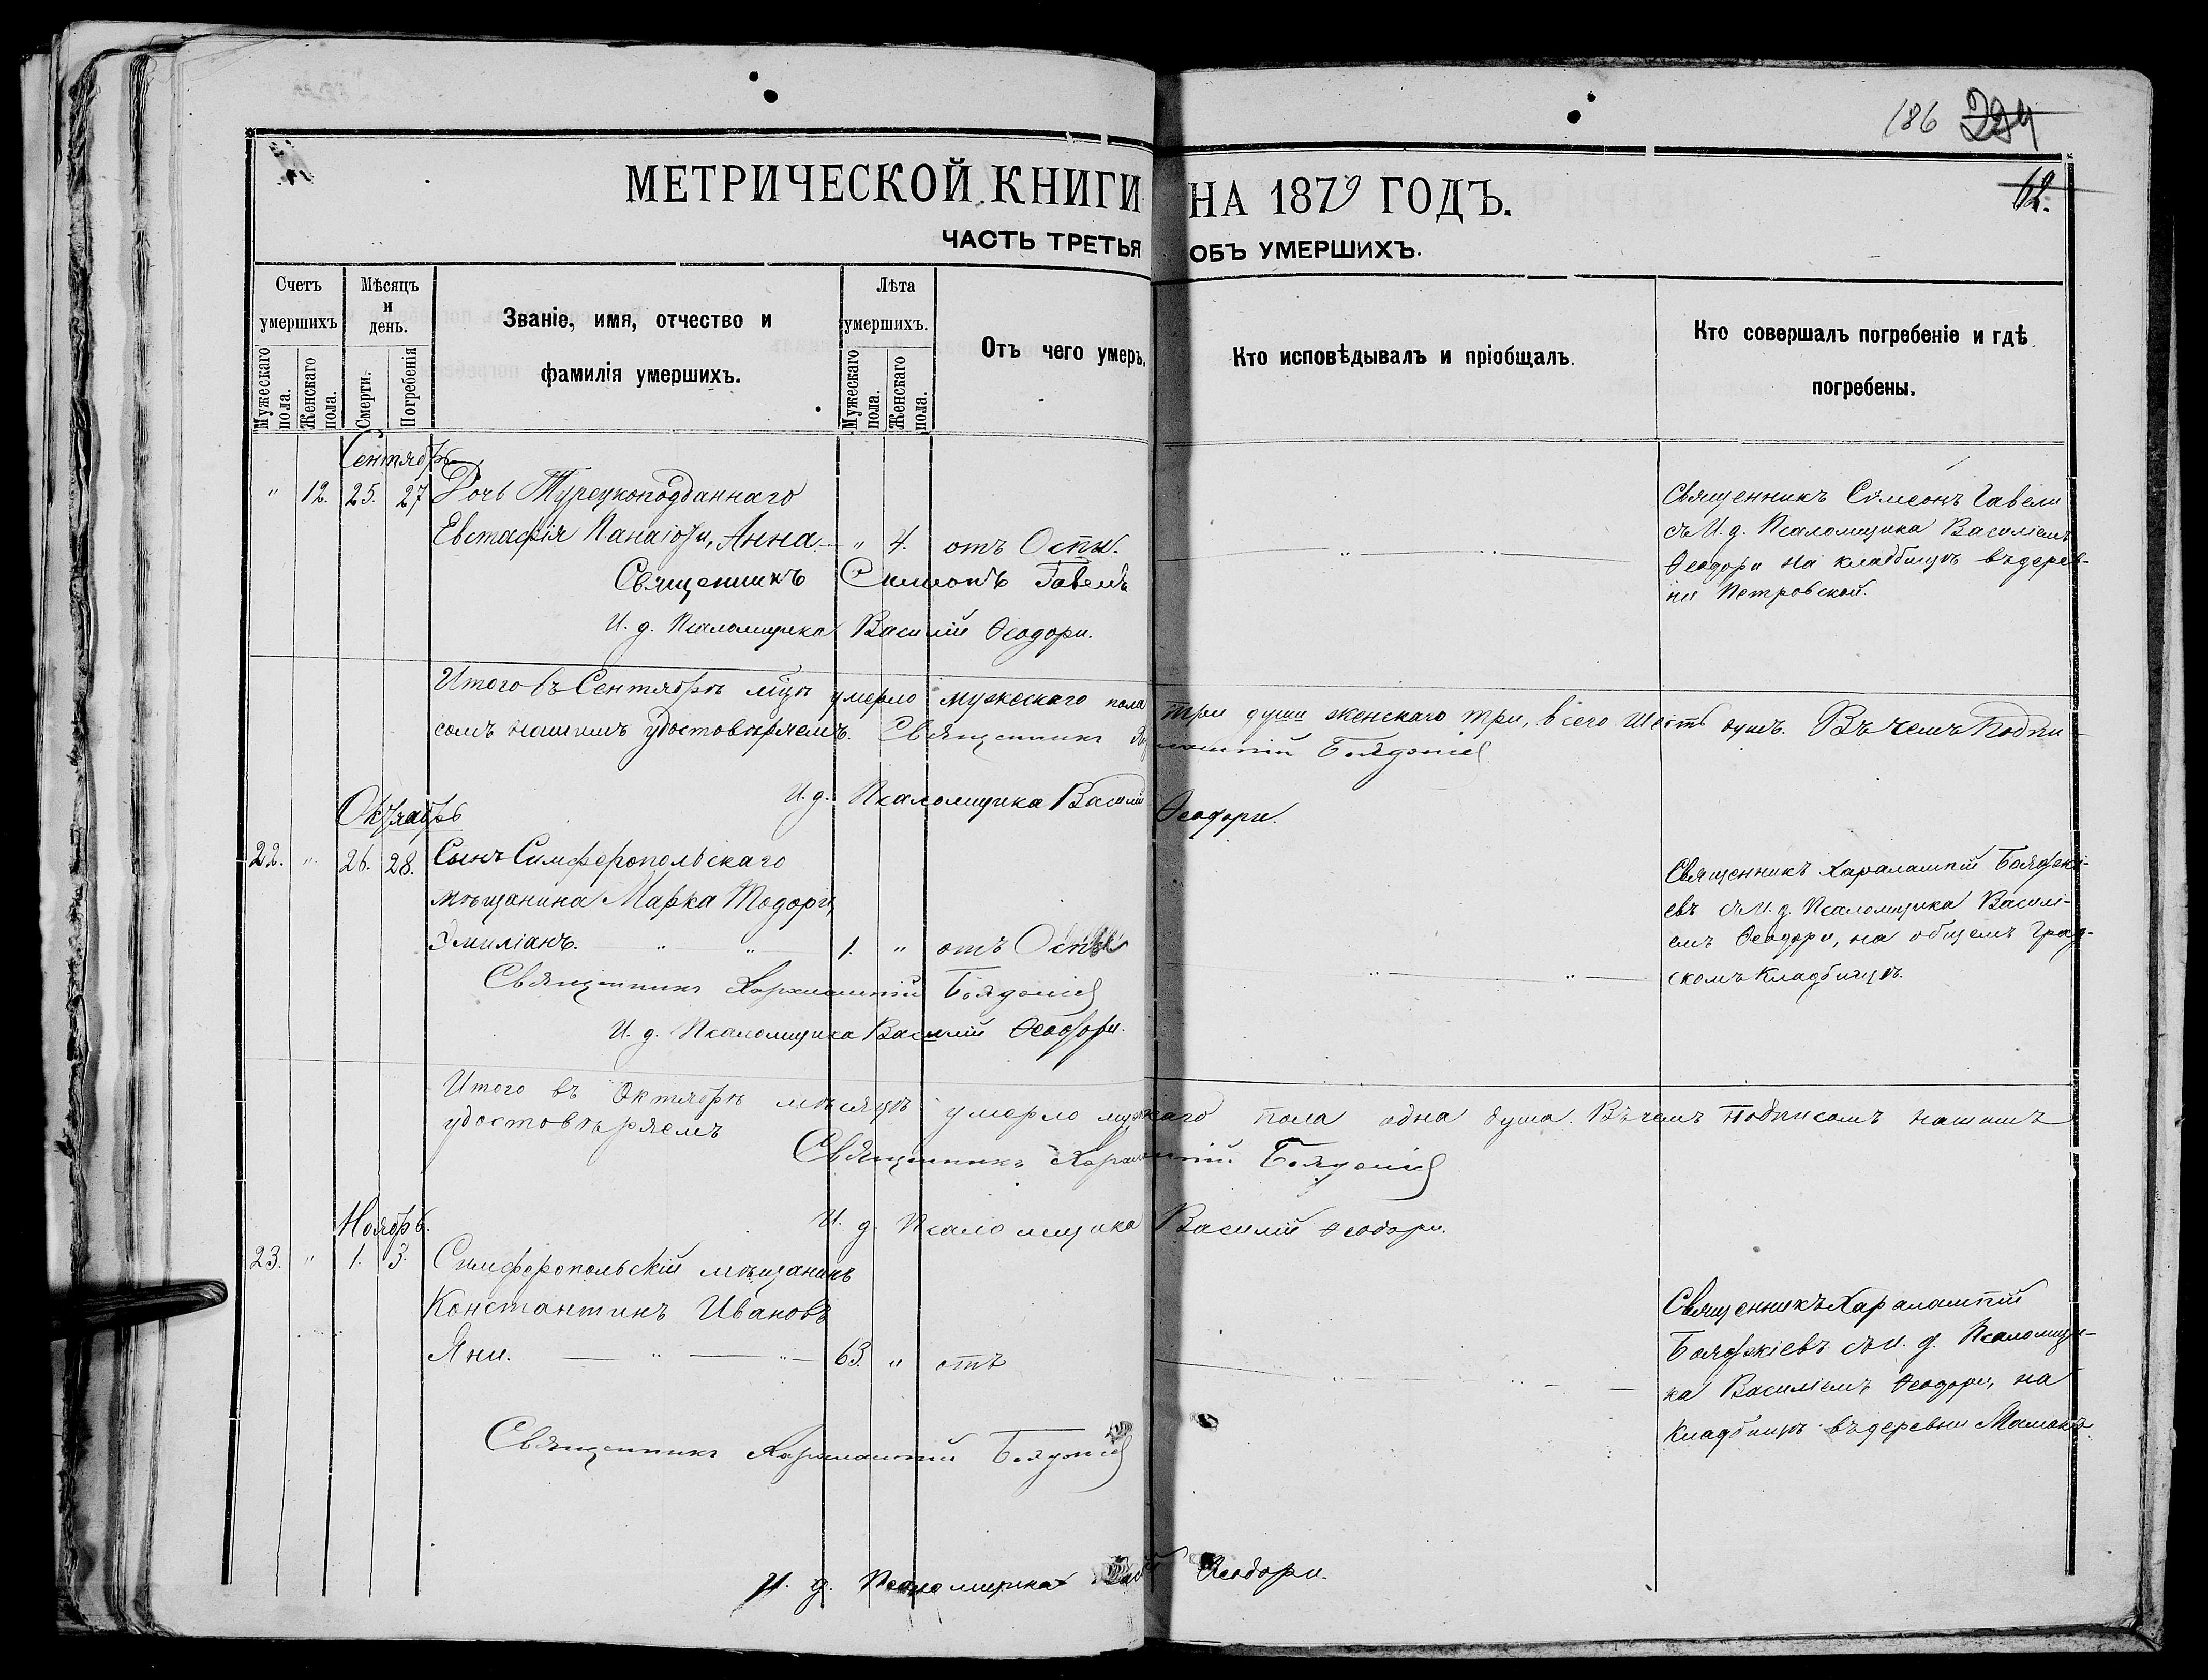 186 294
МЕТРИЧЕСКОЙ КНИГИ НА 1879 ГОДЪ.
62.
ЧАСТЬ ТРЕТЬЯ ОБЪ УМЕРШИХЪ.
Счетъ умершихъ
Мужескаго пола.
Женскаго пола.
Мѣсяцъ и день.
Смерти.
Погребенія
Званіе, имя, отчество и фамилія умершихъ.
Лѣта умершихъ.
Мужескаго пола.
Женскаго пола.
Отъ чего умеръ.
Кто исповѣдывалъ и пріобщалъ.
Кто совершалъ погребеніе и гдѣ погребены.
Сентябрь
" 12. 25. 27 Дочь Турецкоподданнаго
Евстафія Панаіоти, Анна. " 4. отъ Оспы.
Священникъ Симеонъ Гавели
съ И. д. Псаломщика Василіемъ
Ѳеодори на кладбищѣ въ дерев-
ни Петровской.
Священникъ Симеонъ Гавели
И. д. Псаломщика Василій Ѳеодори.
Итого въ Сентябрѣ мцѣ умерло мужескаго пола три души женскаго три, всего шесть душъ. Въ чемъ подпи-
сомъ нашимъ удостовѣряемъ. Священникъ Харалампій Бояджіевъ
И. д. Псаломщика Василій Ѳеодори.
Октябрь
22. " 26. 28. Сынъ Симферопольскаго
мѣщанина Марка Тодори,
Эмиліанъ. " " 1. " отъ Оспы
Священникъ Харалампій Бояджі-
евъ съ И. д. Псаломщика Василі-
емъ Ѳеодори, на общемъ град-
скомъ кладбищѣ.
Священникъ Харалампій Бояджіевъ
И. д. Псаломщика Василій Ѳеодори.
Итого въ Октябрѣ мѣсяцѣ умерло мужскаго пола одна душа. Въ чемъ подписомъ нашимъ
удостовѣряемъ
Священникъ Харалампій Бояджіевъ
И. д. Псаломщика Василій Ѳеодори.
Ноябрь.
23. " 1. 3. Симферопольскій мѣщанинъ
Константинъ Ивановъ
Яни. " " 63. " отъ
Священникъ Харалампій
Бояджіевъ съ И. д. Псаломщи-
ка Василіемъ Ѳеодори, на
кладбищѣ въ деревни Мамакъ
Священникъ Харалампій Бояджіевъ
И. д. Псаломщика Ѳеодори.